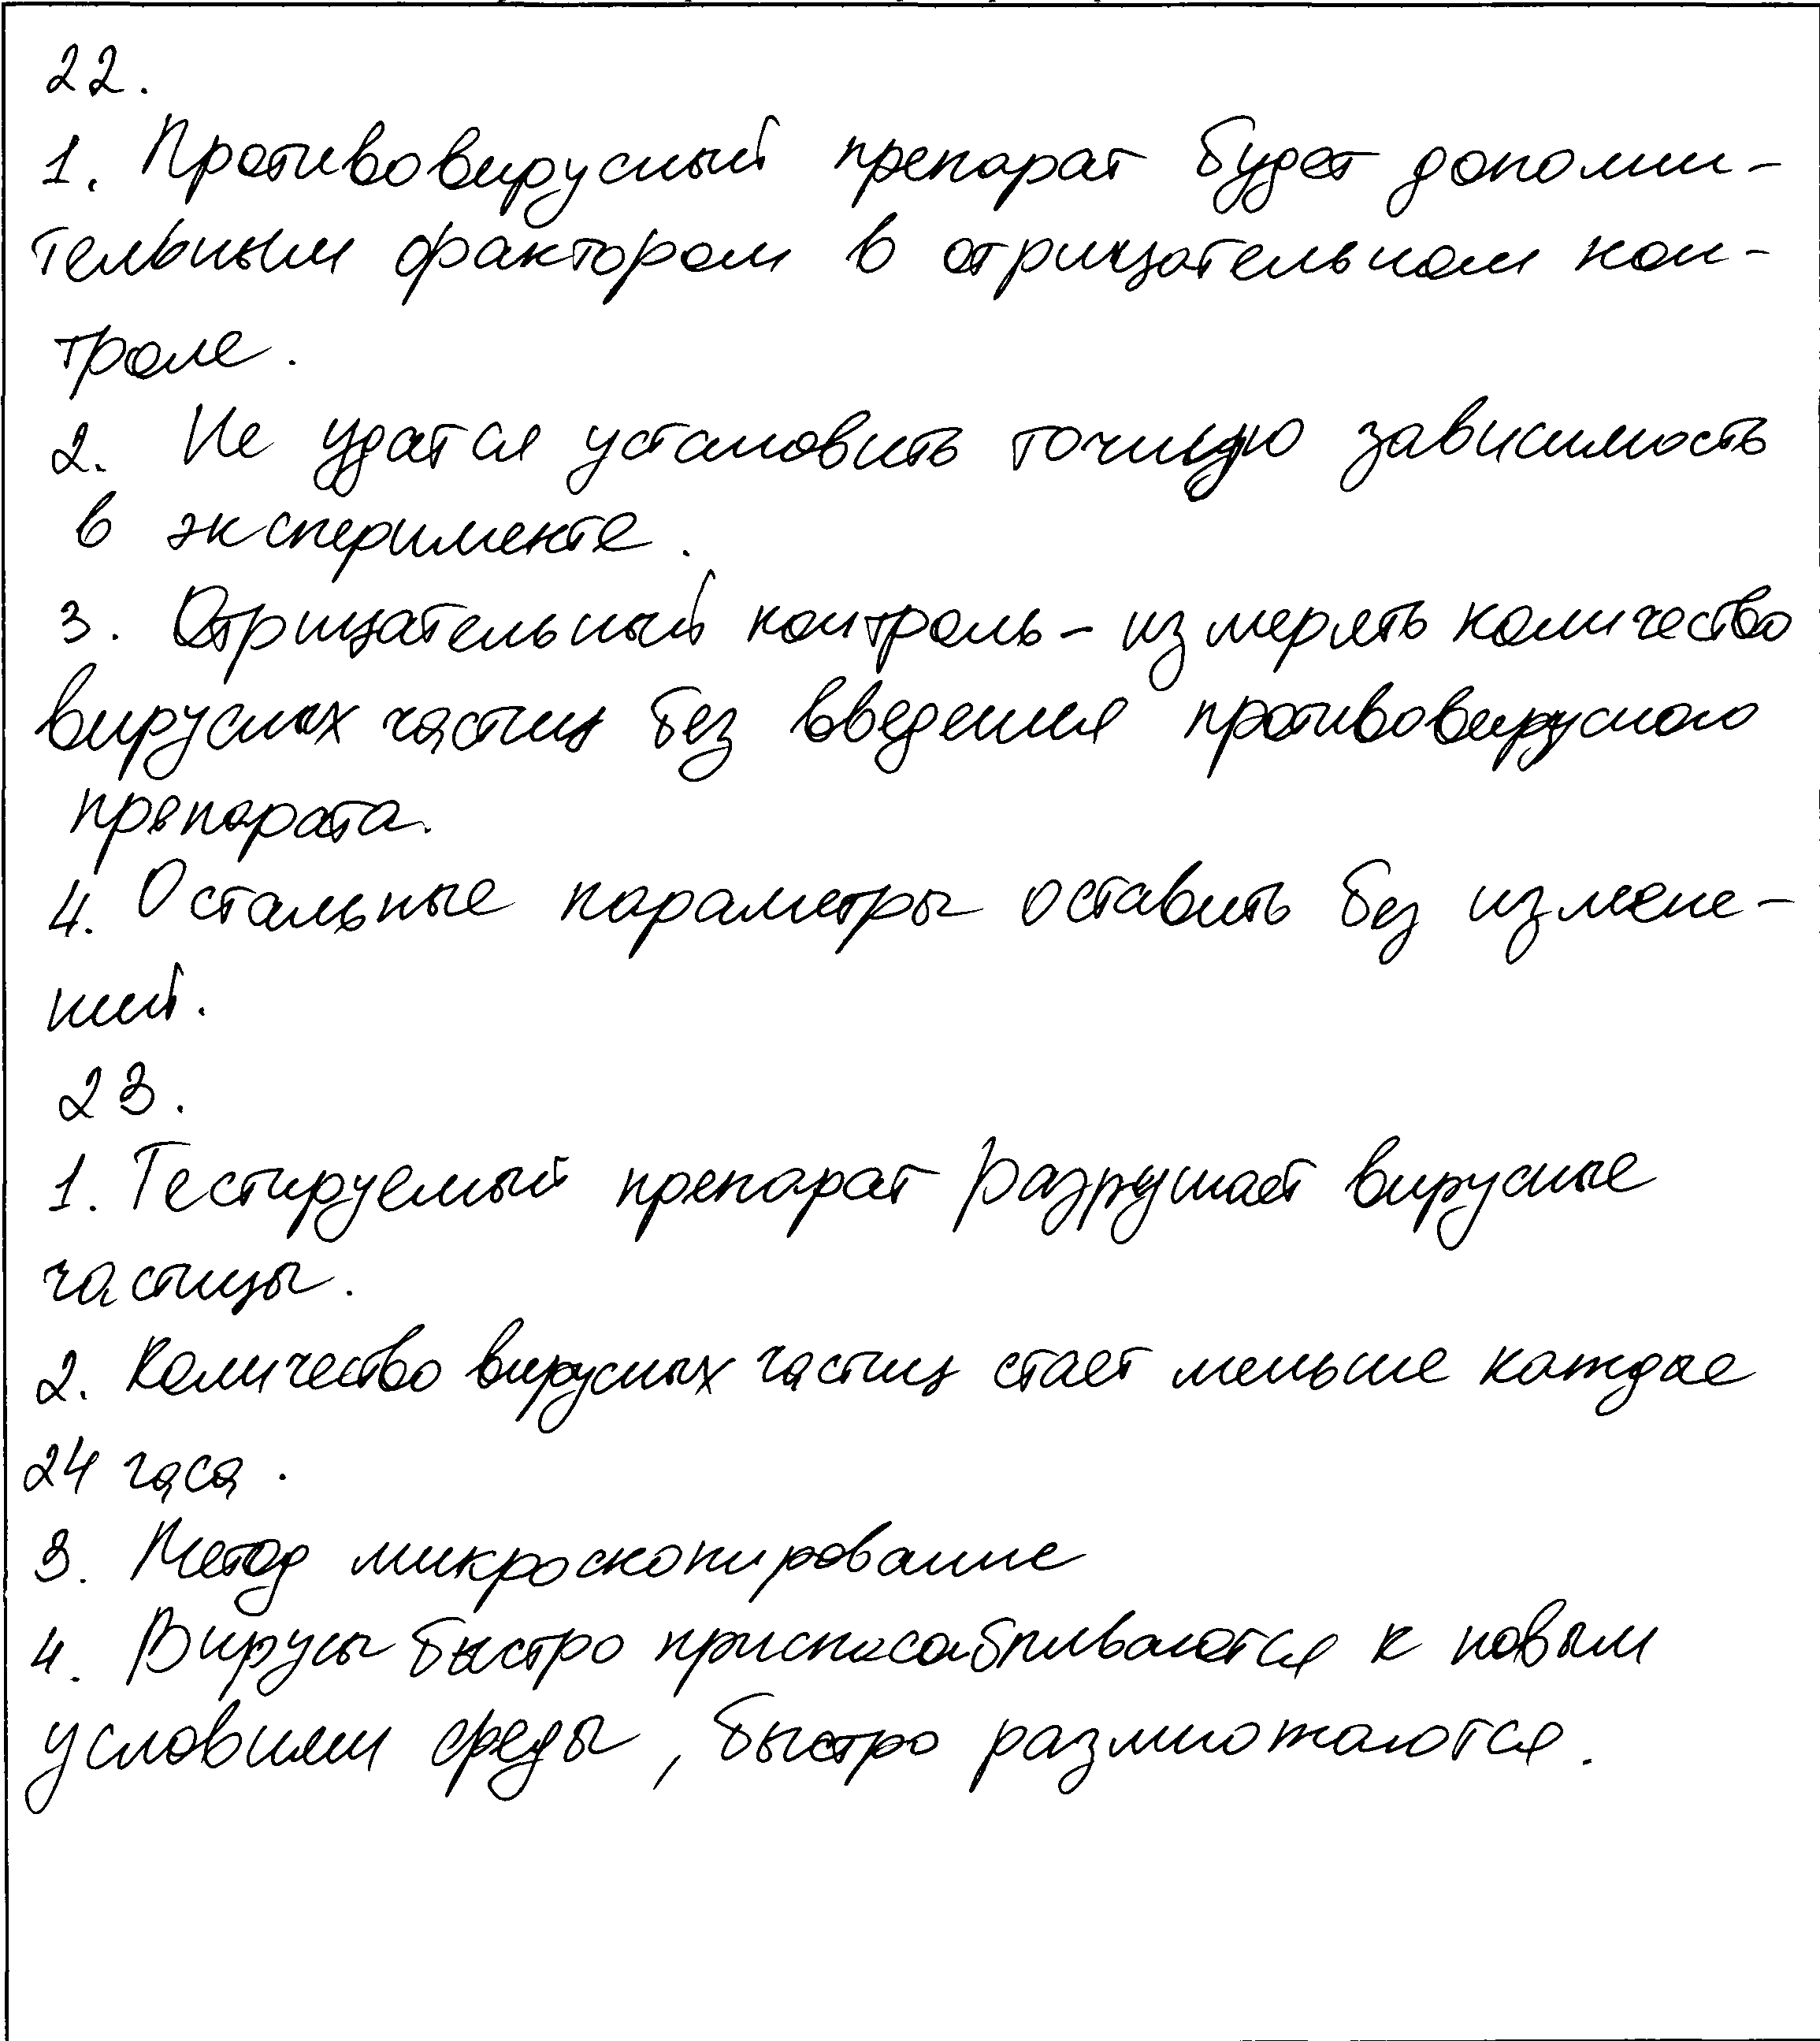 22.
1. Противовирусный препарат будет дополни-
тельным фактором в отрицательном кон-
троле.
2. Не удатся установить точную зависимость
в эксперименте.
3. Отрицательный контроль - измерять количество
вирусных частиц без введения противовирусного
препарата.
4. Остальные параметры оставить без измене-
ний.
23.
1. Тестируемый препарат разрушает вирусные
частицы.
2. Количество вирусных частиц стает меньше каждые
24 часа.
3. Метод микроскопирование
4. Вирусы быстро приспосабливаются к новым
условиям среды, быстро размножаются.